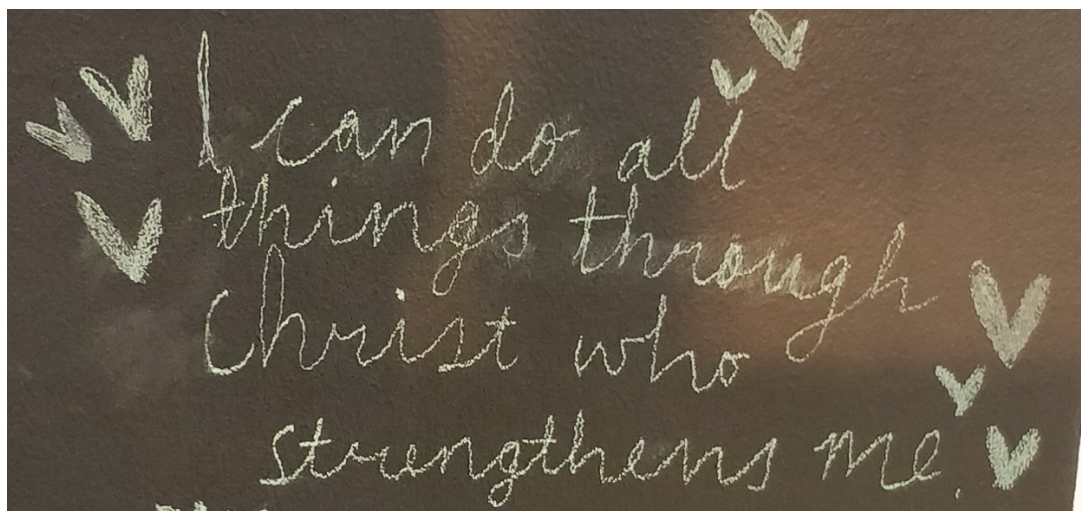 I can do all
things through
Christ who
strengthens me.